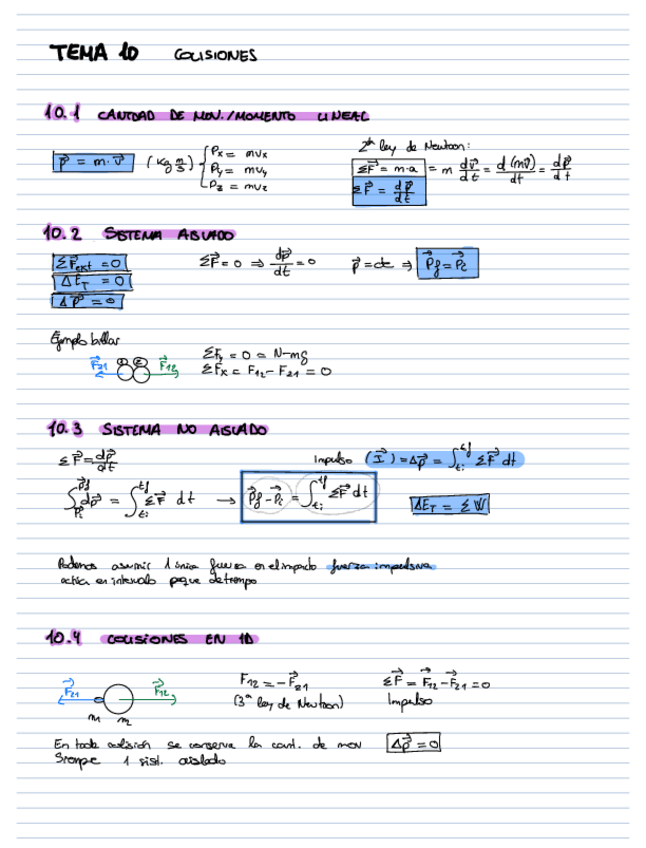 TEMA 10 COLISIONES
10.1 CANTIDAD DE MOV./MOMENTO LINEAL
2ª ley de Newton:
p⃗ = m·v⃗ (kg m/s) { Px = mvx
Py = mvy
Pz = mvz
ΣF⃗ = m·a = m dv⃗/dt = d(mv⃗)/dt = dp⃗/dt
ΣF⃗ = dp⃗/dt
10.2 SISTEMA AISLADO
ΣF⃗ext = 0 ΣF⃗ = 0 ⇒ dp⃗/dt = 0 p⃗ = cte ⇒ P⃗f = P⃗i
ΔET = 0
ΔP⃗ = 0
Ejemplo billar
F⃗21 1 2 F⃗12
ΣFy = 0 = N-mg
ΣFx = F12 - F21 = 0
10.3 SISTEMA NO AISLADO
ΣF⃗ = dp⃗/dt Impulso (I⃗) = Δp⃗ = ∫ti tf ΣF⃗ dt
∫Pi Pf dp⃗ = ∫ti tf ΣF⃗ dt → P⃗f - P⃗i = ∫ti tf ΣF⃗ dt ΔET = ΣW
Podemos asumir 1 única fuerza en el impacto fuerza impulsiva
actúa en intervalo peque de tiempo
10.4 COLISIONES EN 1D
F⃗21 F⃗12 F12 = -F⃗21 ΣF⃗ = F⃗12 - F⃗21 = 0
m1 m2 (3ª ley de Newton) Impulso
En toda colisión se conserva la cant. de mov ΔP⃗ = 0
Siempre 1 sist. aislado